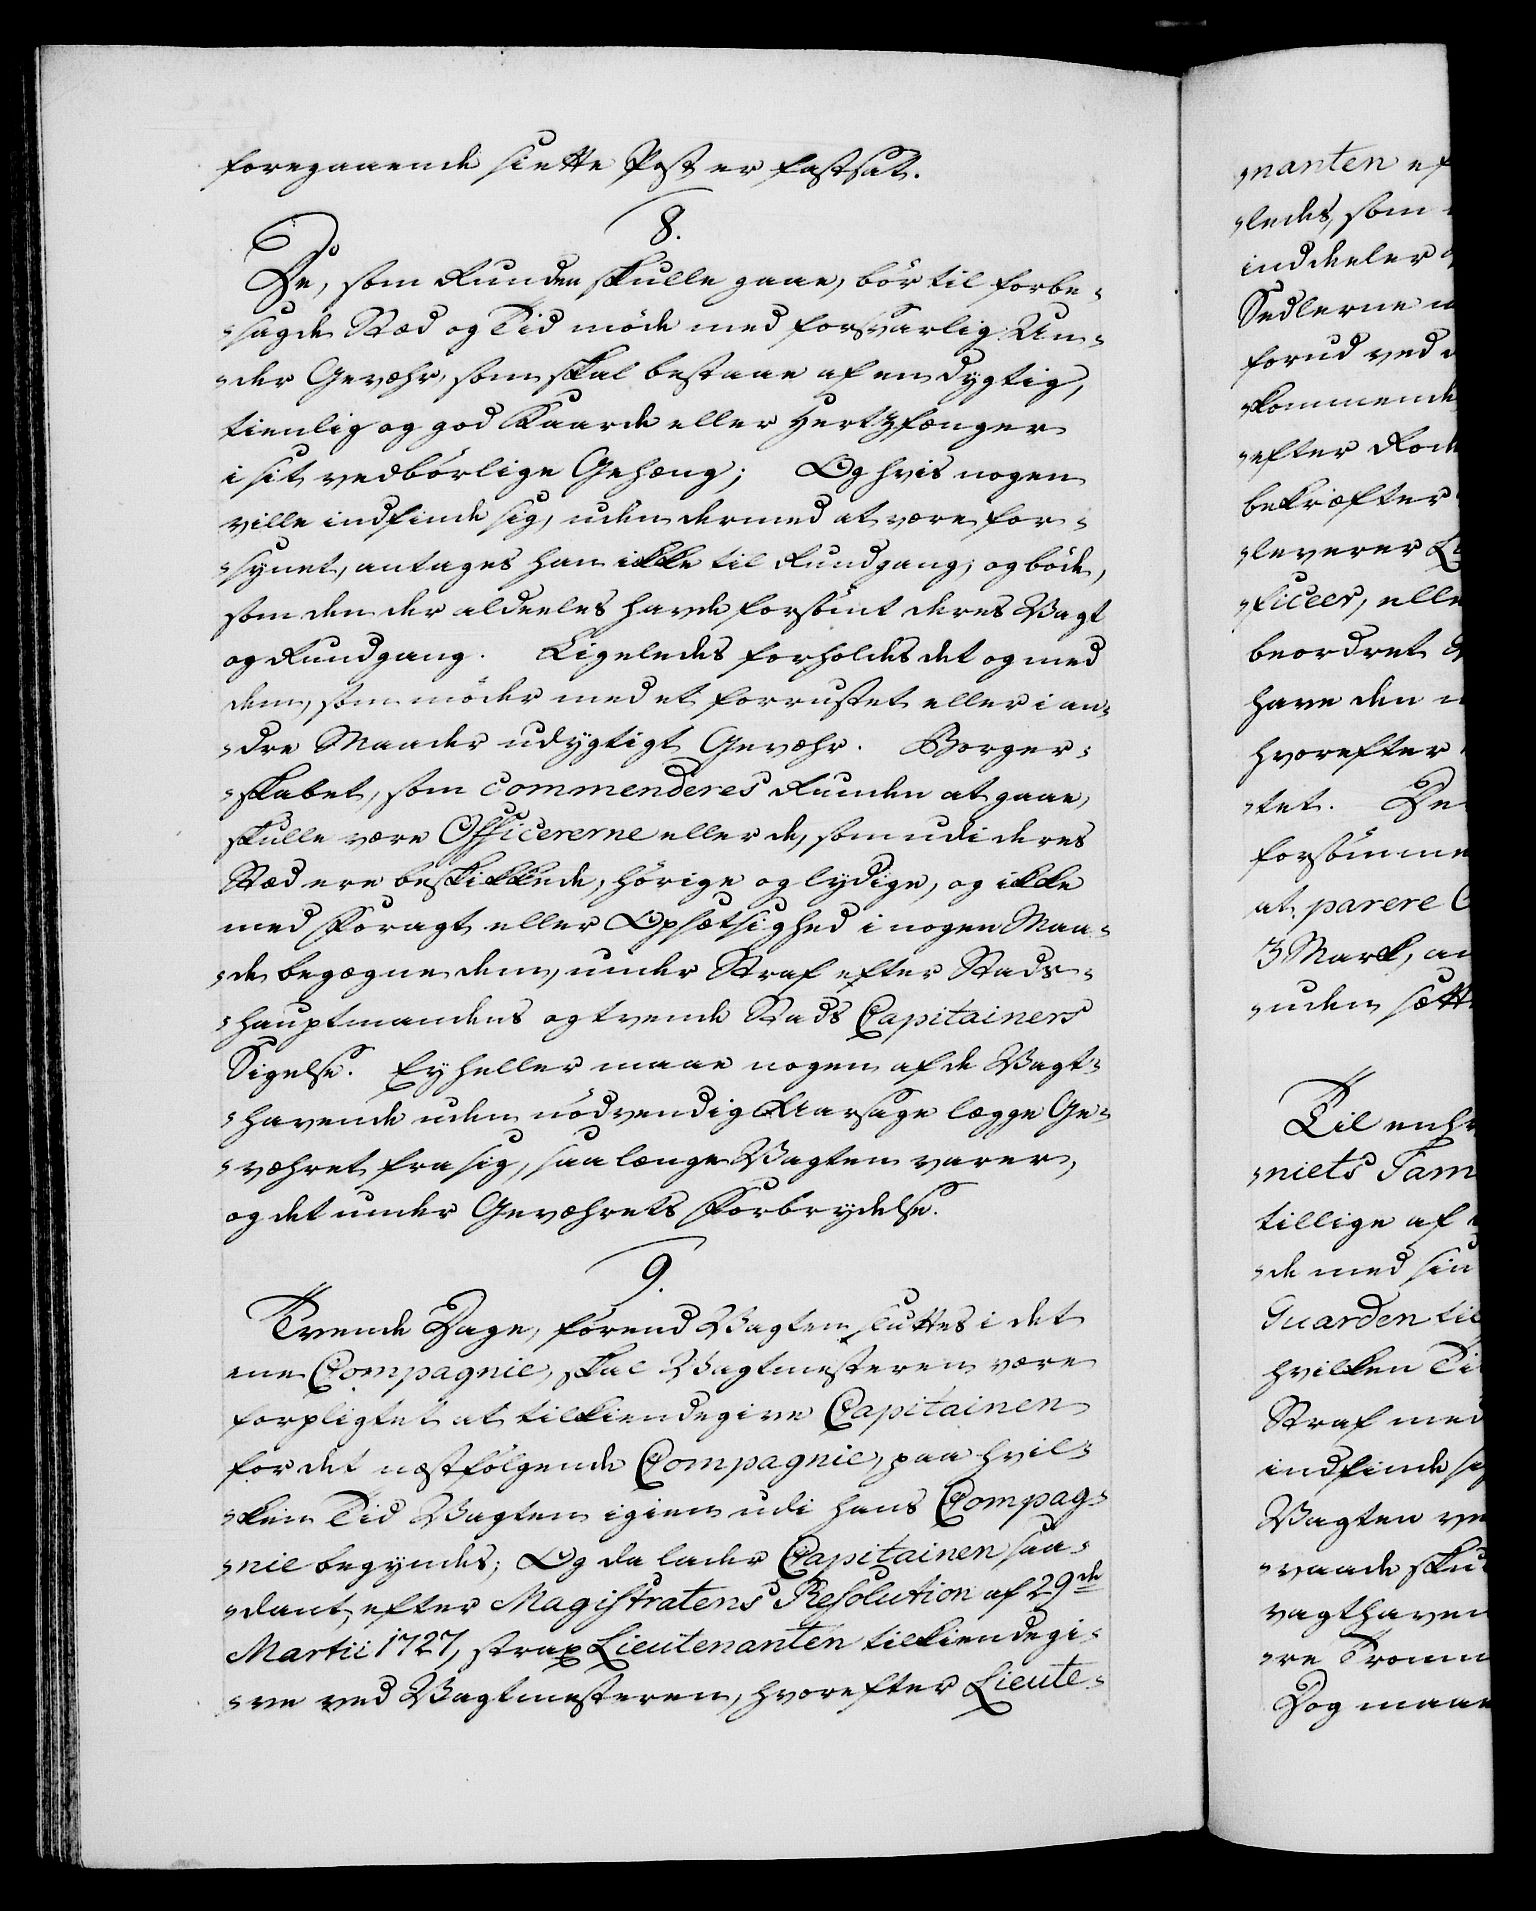 foregaaende siette Post er fastsat.
8.
De, som Runden skulle gaae, bör til forbe-
-sagde Stæd og Tid möde med forsvarlig Un-
-der Gevæhr, som skal bestaae af en dygtig,
tienlig og god Kaarde eller Hertzfænger
i sit vedbörlige Gehæng; Og hvis nogen
ville indfinde sig, uden dermed at være for-
-synet, antages han ikke til Rundgang, og böde,
som den der aldeeles havde forsömt deres Vagt
og Rundgang. Ligeledes forholdes det og med
dem, som möder med et forrustet eller i an-
-dre Maader udygtigt Gevæhr. Borger-
-skabet, som commenderes Runden at gaae,
skulle være Officererne eller de, som udi deres
Stæd ere beskikkede, hörige og lydige, og ikke
med Foragt eller Opsætsighed i nogen Maa-
-de begægne dem, under Straf efter Stads-
-hauptmandens og tvende Stads Capitainers
Sigelse. Ey heller maae nogen af de Vagt-
-havende uden nödvendig Aarsage lægge Ge-
-væhret fra sig, saa længe Vagten varer,
og det under Gevæhrets Forbrydelse.
9.
Tvende Dage, förend Vagten sluttes i det
ene Compagnie, skal Vagtmesteren være
forpligtet at tilkiendegive Capitainen
for det næstfölgende Compagnie, paa hvil-
-ken Tid Vagten igien udi hans Compag-
-nie begyndes; Og da lader Capitainen saa-
-dant, efter Magistratens Resolution af 29de
Martii 1727, strax Lieutenanten tilkiendegi-
-ve ved Vagtmesteren, hvorefter Lieute-
-nanten ef
-ledes, som
inddeeler
Sedlerne
forud ved
-kommende
-efter Rode
bekræfter
-leverer
-ficeer, elle
beordret
have den
hvorefter
-tet. De
forsömme
at parere
3 Mark, an
-uden sætt
Til enh
-niets Tam
tillige af
-de med sin
Guarden til
hvilken Ti
Straf med
indfinde sig
Vagten ve
-vaade sku
vagthaven
-re Tromm
Dog maae